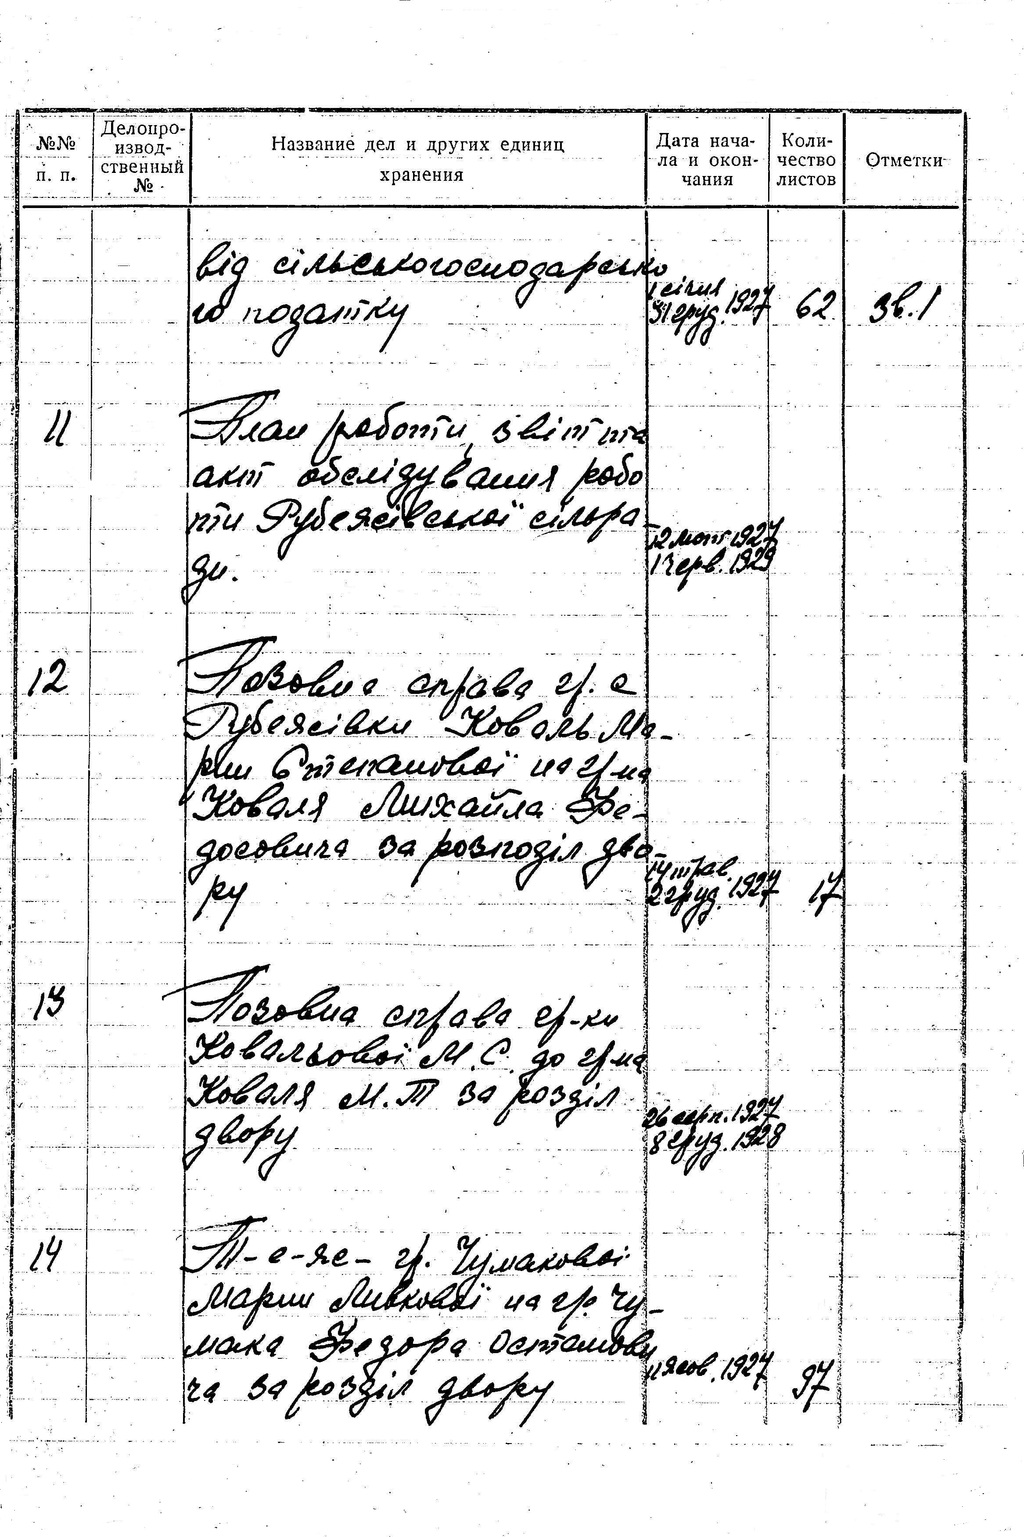 №№ п. п.
Делопро-
извод-
ственный
№
Название дел и других единиц
хранения
Дата нача-
ла и окон-
чания
Коли-
чество
листов
Отметки
від сільськогосподарсько
го податку
1 січня
31 груд. 1927
62
Зв. 1
11
План роботи, звіт та
акт обслідування робо
ти Рубежівської сільра-
ди.
12 лют 1927
1 черв. 1929
12
Позовна справа гр. с
Рубежівки Коваль Ма-
рии Степанової на гр-на
Коваля Михайла Фе-
досовича за розподіл дво-
ру
14 трав.
2 груд. 1927
17
13
Позовна справа гр-ки
Ковальової М. С. до гр-на
Коваля М. Т за розділ
двору
26 серп. 1927
8 груд. 1928
14
Т-е-ж- гр. Чумакової
Марии Левкової на гр. Чу-
мака Федора Остапови
ча за розділ двору
жов. 1927
97